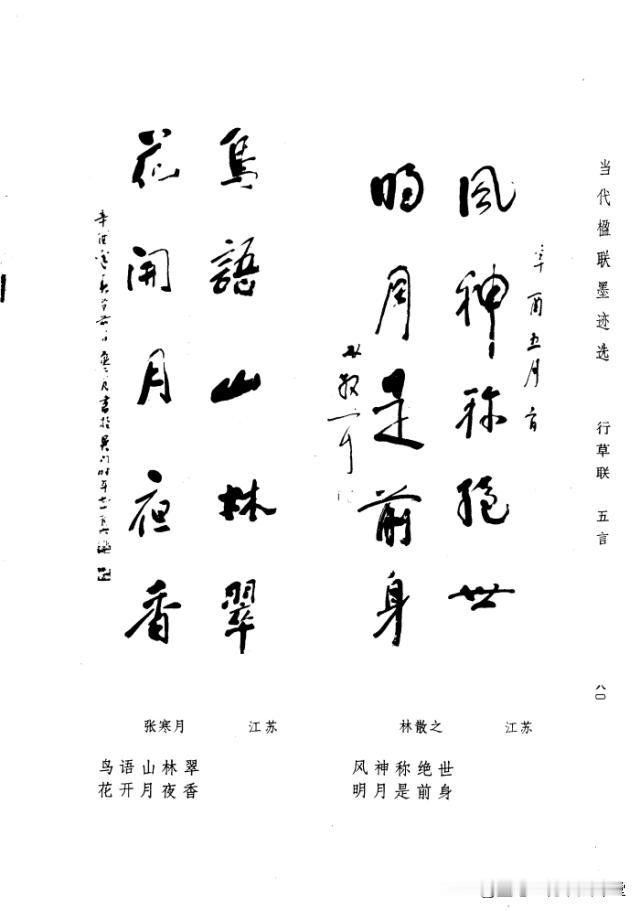 当代楹联墨迹选 行草联 五言
八〇
風神称绝世
辛酉五月
明月是前身
鳥語山林翠
花開月夜香
江苏
林散之
风神称绝世
明月是前身
江苏
张寒月
鸟语山林翠
花开月夜香